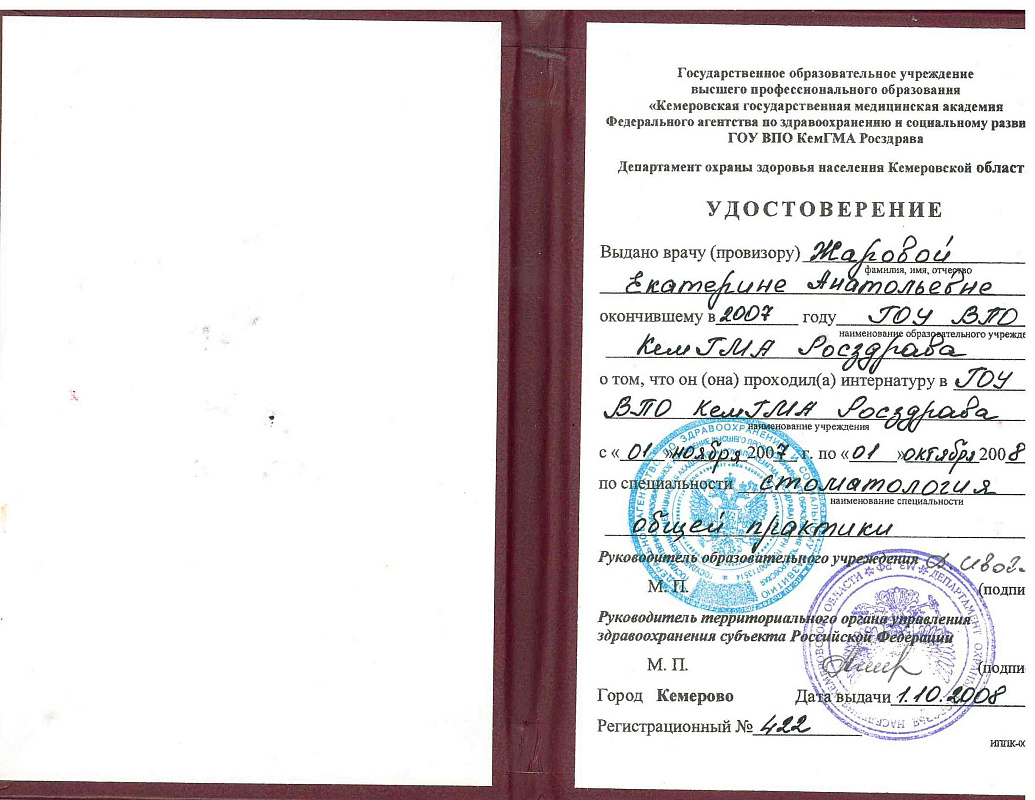 Государственное образовательное учреждение
высшего профессионального образования
«Кемеровская государственная медицинская академия
Федерального агентства по здравоохранению и социальному разви
ГОУ ВПО КемГМА Росздрава
Департамент охраны здоровья населения Кемеровской област
УДОСТОВЕРЕНИЕ
Выдано врачу (провизору) Жаровой
фамилия, имя, отчество
Екатерине Анатольевне
окончившему в 2007 году ГОУ ВПО
наименование образовательного учрежде
КемГМА Росздрава
о том, что он (она) проходил(а) интернатуру в ГОУ
ВПО КемГМА Росздрава
наименование учреждения
с «01 »ноября 2007 г. по «01 »октября 2008
по специальности стоматология
наименование специальности
общей практики
Руководитель образовательного учреждения
М. П. (подпи
Руководитель территориального органа управления
здравоохранения субъекта Российской Федерации
М. П. (подпи
Город Кемерово Дата выдачи 1.10.2008
Регистрационный № 422
ИППК-00